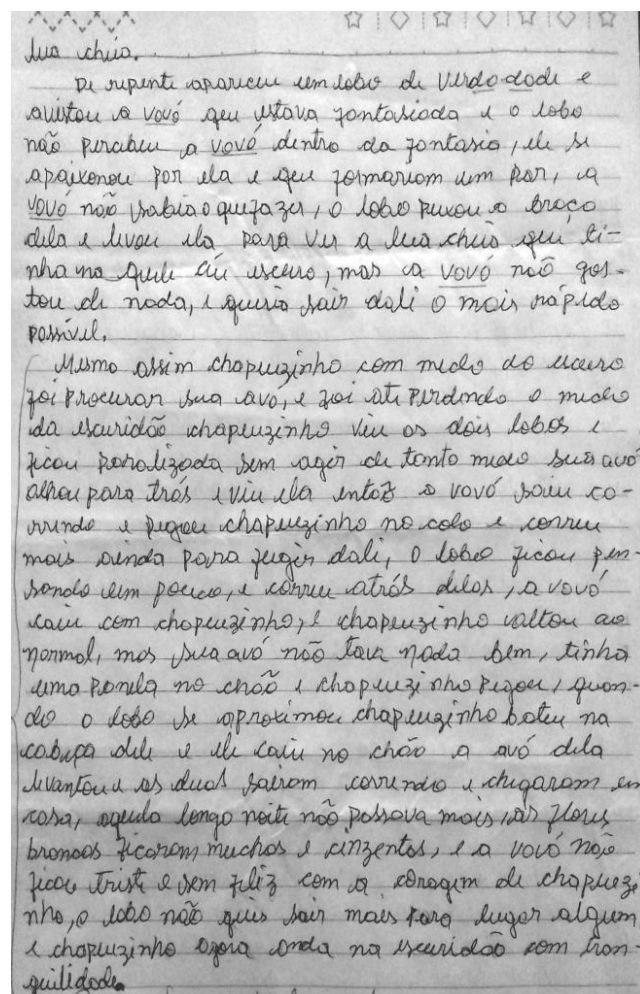 lua cheia.
De repente apareceu um lobo de verdodode e
avistou a vovó qeu estava fontasioda e o lobo
não percebeu a vovó dentro da fontasia, ele se
apaixonou por ela e qeu formariom um par, a
vovó não sabia o que fazer, o lobo puxou o braço
dela e levou ela para ver a lua cheia que ti-
nha na quele céu escuro, mas a vovó não gos-
tou de nada, e queria sair dali o mais rápido
possível.
Mesmo assim chapeuzinho com medo do escuro
foi procurar sua avó, e foi ate perdendo o medo
da escuridão chapeuzinho viu os dois lobos e
ficou paralizada sem agir de tanto medo sua avó
olhou para trás e viu ela então a vovó saiu co-
rrendo e pegou chapeuzinho no colo e correu
mais ainda para fugir dali, o lobo ficou pen-
sando um pouco, e correu atrás delas, a vovó
caiu com chapeuzinho, e chapeuzinho valtou ao
normal, mas sua avó não tava nada bem, tinha
uma panela no chão e chapeuzinho pegou, quan-
do o lobo se aproximou chapeuzinho bateu na
cabeça dele e ele caiu no chão a avó dela
levantou e as duas sairam correndo e chegaram em
casa, aquela longa noite não passava mais, as flores
brancas ficaram muchas e cinzentas, e a vovó não
ficou triste e sem feliz com a coragem de chapeuzi
nho, o lobo não quis sair mais para lugar algum
e chapeuzinho agora anda na escuridão com tran-
quilidade.